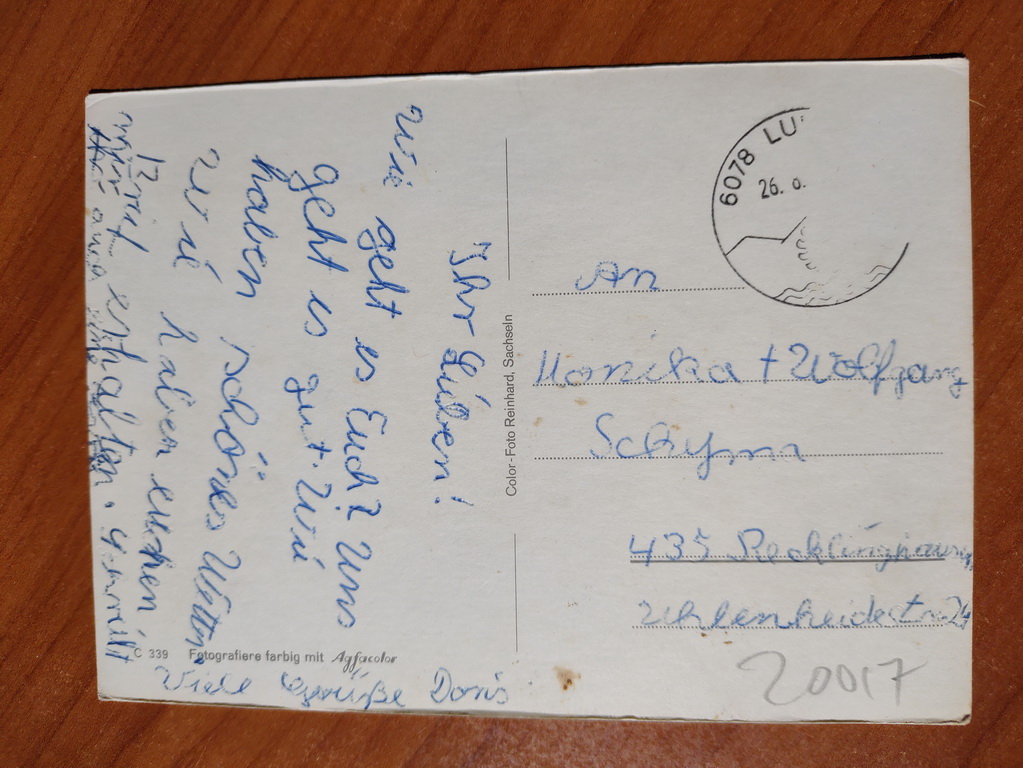 Ihr Lieben!
Wie geht es Euch? Uns
geht es gut. Wir
haben schönes Wetter.
Wir haben euren
Brief erhalten.
Viele Grüße Doris
C 339 Fotografiere farbig mit Agfacolor
Color-Foto Reinhard, Sachseln
6078 LU
26.
An
Monika + Wolfgang
435 Recklinghausen
Uhlenheidestr 24
20017